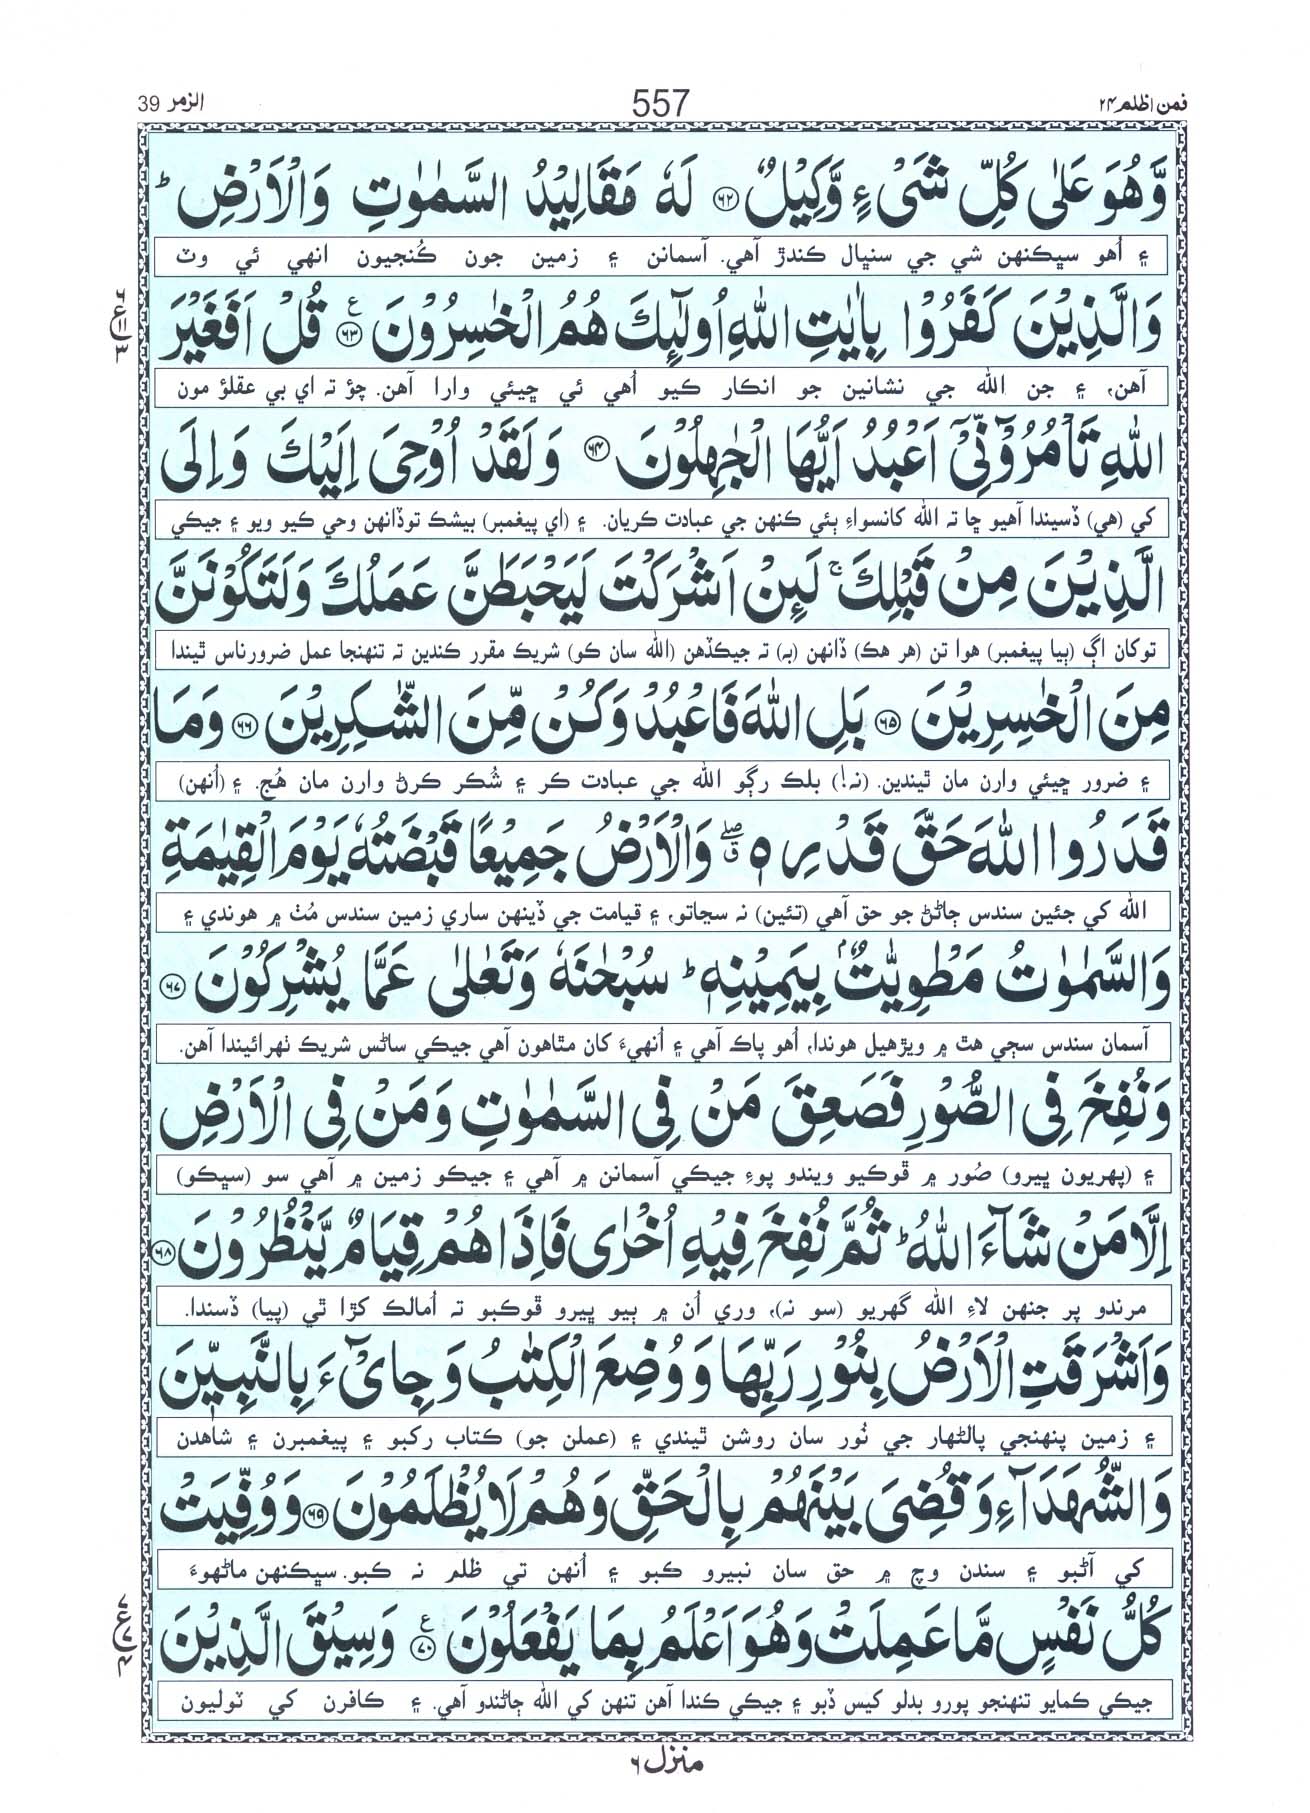 فمن اظلم ۲۴
557
الزمر 39
وَّهُوَ عَلٰى كُلِّ شَیْءٍ وَّكِیْلٌ ۶۲ لَهٗ مَقَالِیْدُ السَّمٰوٰتِ وَالْاَرْضِ ؕ
۽ اُهو سڀڪنهن شي جي سنڀال ڪندڙ آهي. آسمانن ۽ زمين جون ڪُنجيون انهي ئي وٽ
وَالَّذِیْنَ كَفَرُوْا بِاٰیٰتِ اللّٰهِ اُولٰٓئِكَ هُمُ الْخٰسِرُوْنَ ۶۳ ع قُلْ اَفَغَیْرَ
آهن، ۽ جن الله جي نشانين جو انڪار ڪيو اُهي ئي ڇيئي وارا آهن. چؤ ته اي بي عقلؤ مون
اللّٰهِ تَاْمُرُوْٓنِّیْۤ اَعْبُدُ اَیُّهَا الْجٰهِلُوْنَ ۶۴ وَلَقَدْ اُوْحِیَ اِلَیْكَ وَاِلَی
کي (هي) ڏسيندا آهيو ڇا ته الله کانسواءِ ٻئي ڪنهن جي عبادت ڪريان. ۽ (اي پيغمبر) بيشڪ توڏانهن وحي ڪيو ويو ۽ جيڪي
الَّذِیْنَ مِنْ قَبْلِكَ ۚ لَىِٕنْ اَشْرَكْتَ لَیَحْبَطَنَّ عَمَلُكَ وَلَتَكُوْنَنَّ
توکان اڳ (ٻيا پيغمبر) هوا تن (هر هڪ) ڏانهن (به) ته جيڪڏهن (الله سان ڪو) شريڪ مقرر ڪندين ته تنهنجا عمل ضرورناس ٿيندا
مِنَ الْخٰسِرِیْنَ ۶۵ بَلِ اللّٰهَ فَاعْبُدْ وَكُنْ مِّنَ الشّٰكِرِیْنَ ۶۶ وَمَا
۽ ضرور ڇيئي وارن مان ٿيندين. (نه!) بلڪ رڳو الله جي عبادت ڪر ۽ شُڪر ڪرڻ وارن مان هُج. ۽ (اُنهن)
قَدَرُوا اللّٰهَ حَقَّ قَدْرِهٖ ۖق وَالْاَرْضُ جَمِیْعًا قَبْضَتُهٗ یَوْمَ الْقِیٰمَةِ
الله کي جئين سندس ڄاڻڻ جو حق آهي (تئين) نه سڃاتو، ۽ قيامت جي ڏينهن ساري زمين سندس مُٺ ۾ هوندي ۽
وَالسَّمٰوٰتُ مَطْوِیّٰتٌۢ بِیَمِیْنِهٖ ؕ سُبْحٰنَهٗ وَتَعٰلٰى عَمَّا یُشْرِكُوْنَ ۶۷
آسمان سندس سڄي هٿ ۾ ويڙهيل هوندا، اُهو پاڪ آهي ۽ اُنهيءَ کان مٿاهون آهي جيڪي ساڻس شريڪ ٺهرائيندا آهن.
وَنُفِخَ فِی الصُّوْرِ فَصَعِقَ مَنْ فِی السَّمٰوٰتِ وَمَنْ فِی الْاَرْضِ
۽ (پهريون ڀيرو) صُور ۾ ڦوڪيو ويندو پوءِ جيڪي آسمانن ۾ آهي ۽ جيڪو زمين ۾ آهي سو (سڀڪو)
اِلَّا مَنْ شَآءَ اللّٰهُ ؕ ثُمَّ نُفِخَ فِیْهِ اُخْرٰى فَاِذَا هُمْ قِیَامٌ یَّنْظُرُوْنَ ۶۸
مرندو پر جنهن لاءِ الله گهريو (سو نه)، وري اُن ۾ ٻيو ڀيرو ڦوڪبو ته اُمالڪ کڙا ٿي (پيا) ڏسندا.
وَاَشْرَقَتِ الْاَرْضُ بِنُوْرِ رَبِّهَا وَوُضِعَ الْكِتٰبُ وَجِایْٓءَ بِالنَّبِیّٖنَ
۽ زمين پنهنجي پالڻهار جي نُور سان روشن ٿيندي ۽ (عملن جو) ڪتاب رکبو ۽ پيغمبرن ۽ شاهدن
وَالشُّهَدَآءِ وَقُضِیَ بَیْنَهُمْ بِالْحَقِّ وَهُمْ لَا یُظْلَمُوْنَ ۶۹ وَوُفِّیَتْ
کي آڻبو ۽ سندن وچ ۾ حق سان نبيرو ڪبو ۽ اُنهن تي ظلم نه ڪبو. سڀڪنهن ماڻهوءَ
كُلُّ نَفْسٍ مَّا عَمِلَتْ وَهُوَ اَعْلَمُ بِمَا یَفْعَلُوْنَ ۷۰ ع وَسِیْقَ الَّذِیْنَ
جيڪي ڪمايو تنهنجو پورو بدلو کيس ڏبو ۽ جيڪي ڪندا آهن تنهن کي الله ڄاڻندو آهي. ۽ ڪافرن کي ٽوليون
منزل ۶